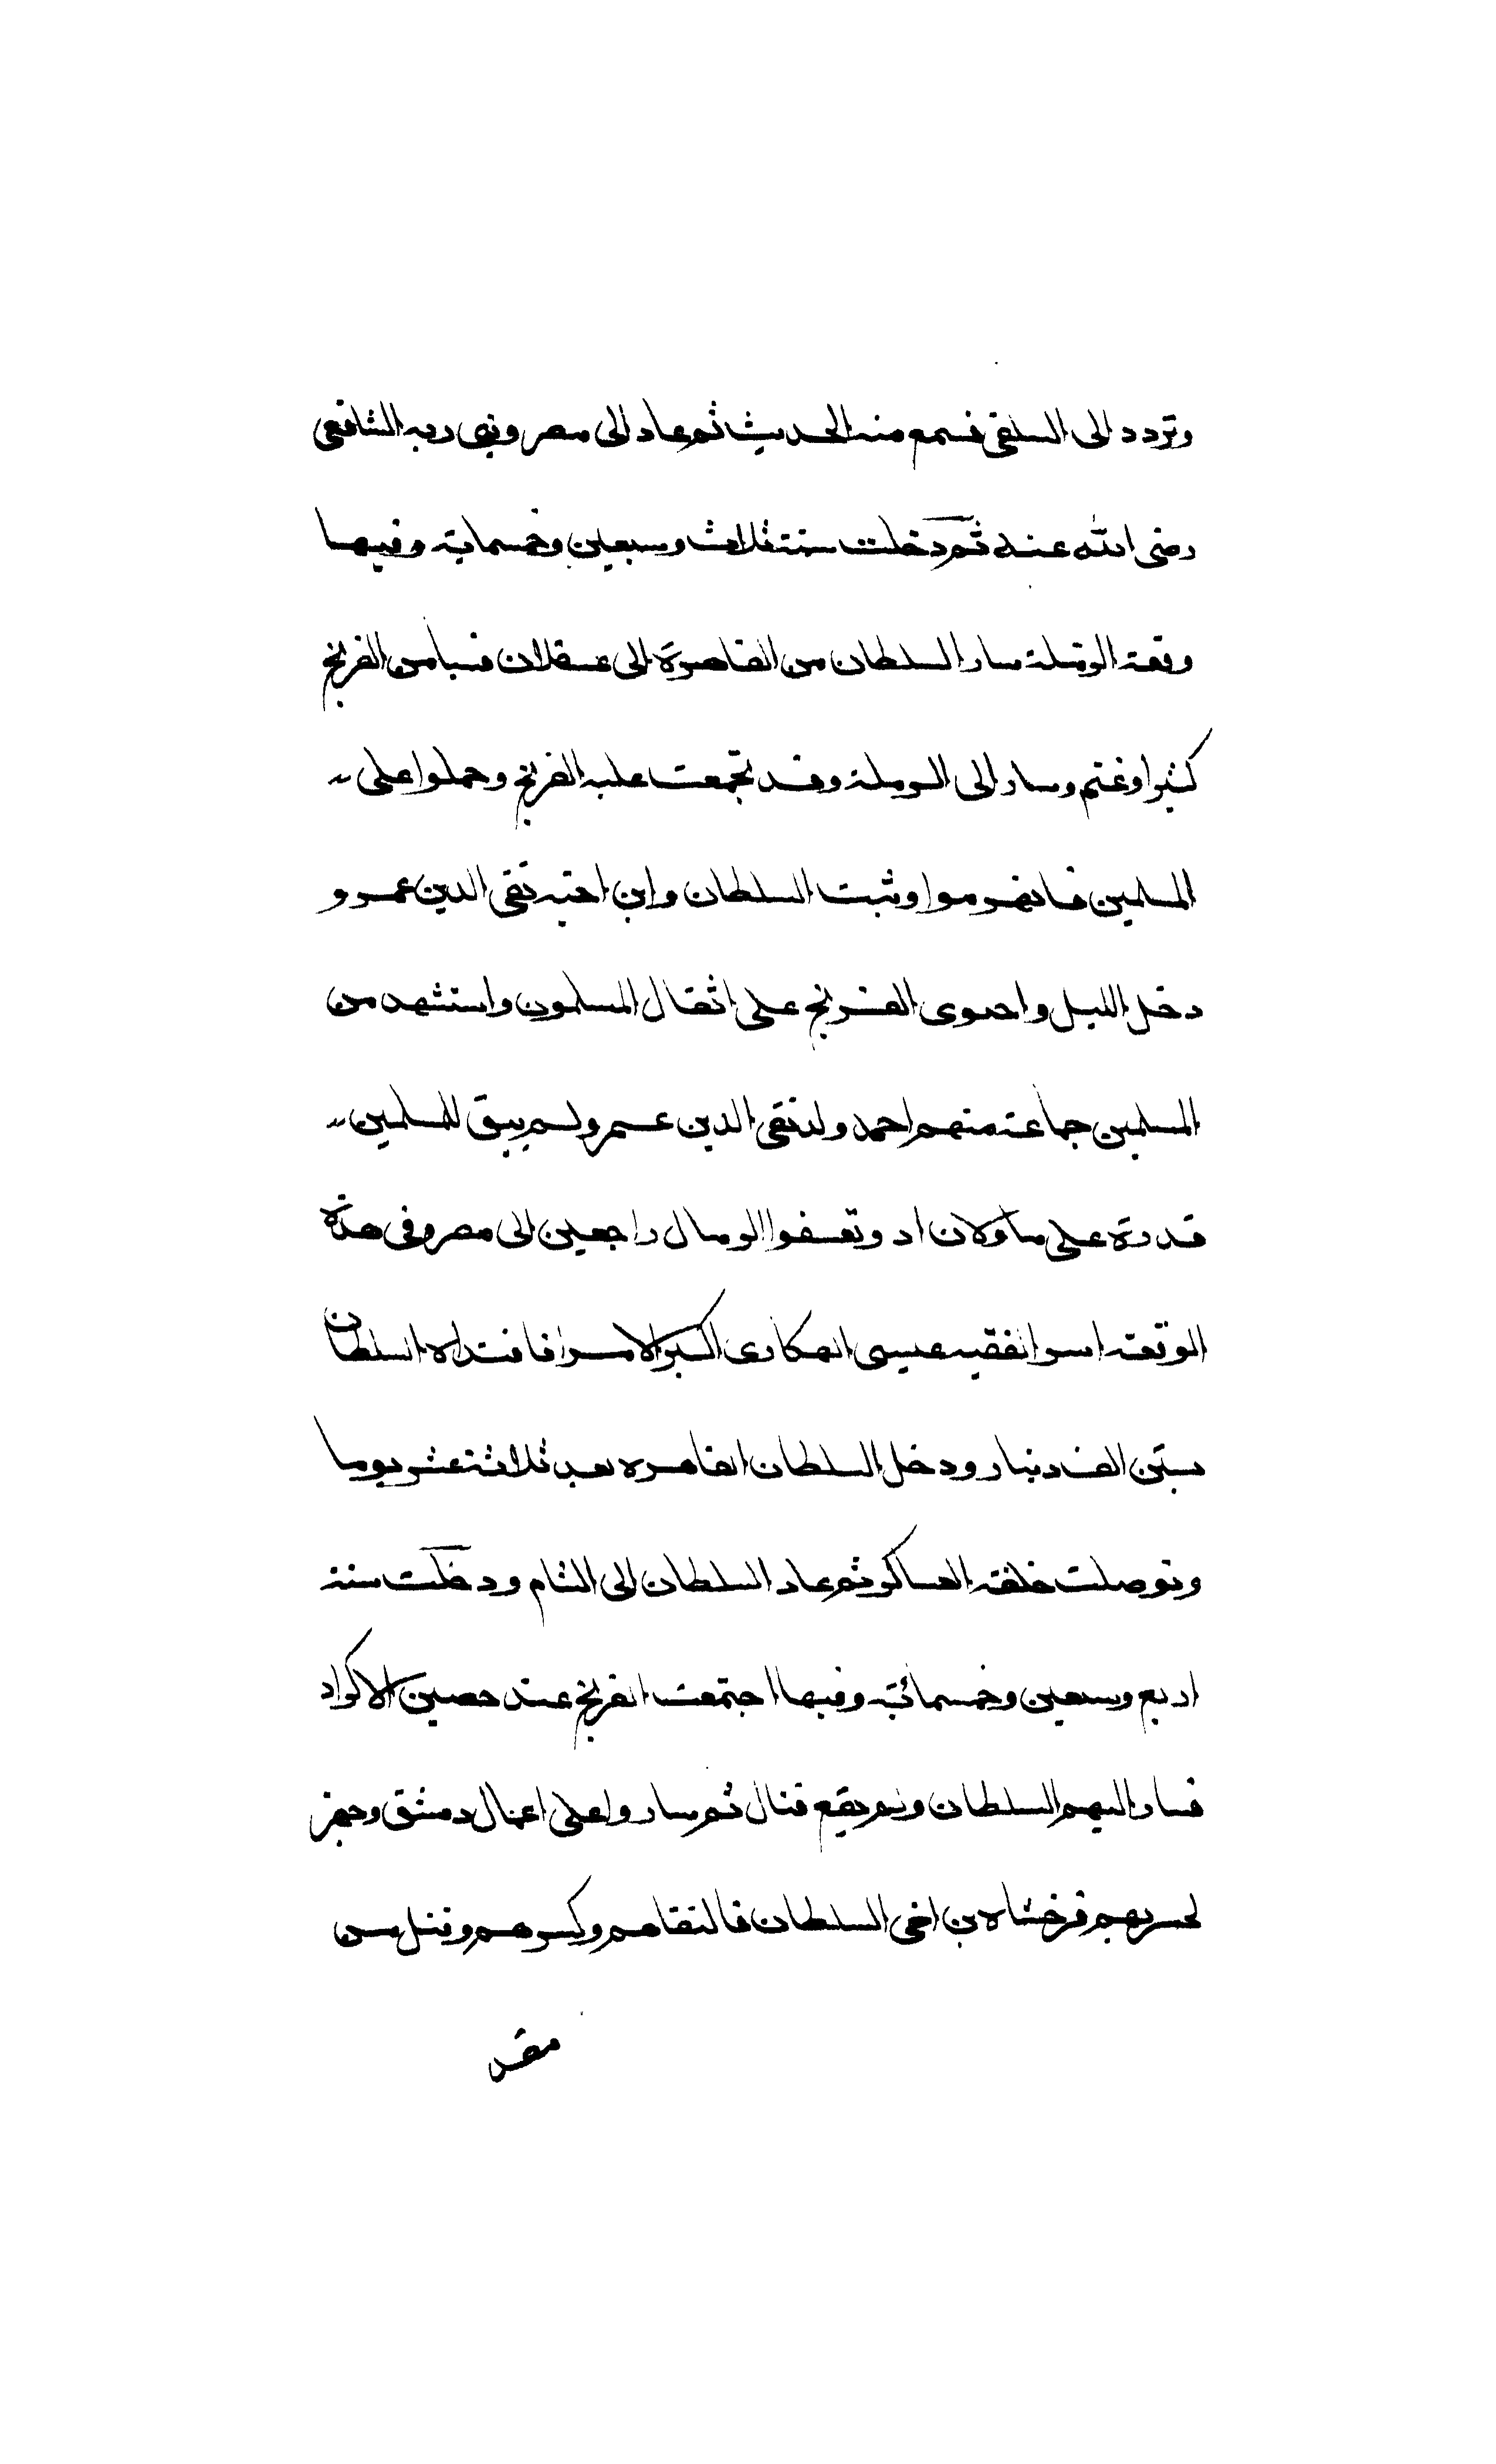 وتردد الى السلفى فسمع منه الحديث ثم عاد الى مصر وبنى ربه الشافعى
رضى الله عنه ثم دخلت سنة ثلاث وسبعين وخمسماية وفيها
وقعة الرملة سار السلطان من القاهرة الى عسقلان فسبا من الفرنج
كثيرا وغنم وسار الى الرملة وقد تجمعت عليه الفرنج وحملوا على
المسلمين فانهزموا وثبت السلطان وابن اخيه تقى الدين عمر و
دخل الليل واحتوى الفرنج على اثقال المسلمون واستشهد من
المسلمين جماعة منهم احمد ولد تقى الدين عمر ولم يبق للمسلمين
قدرة على ماولان اد وتعسفوا الرمال راجعين الى مصر وفى هذه
الوقعة اسر الفقيه عيسى الهكارى اكبر الامرا فافتداه السلطان
بستين الف دينار ودخل السلطان القاهره بعد ثلاثة عشر يوما
وتوصلت خلفه العساكر ثم عاد السلطان الى الشام ودخلت سنة
اربع وسبعين وخمسمائة وفيها اجتمعت الفرنج عند حصين الاكراد
فسار اليهم السلطان ولم يقع قتال ثم ساروا على اعمال دمشق وجهز
لحربهم فرخشاه بن اخى السلطان فالتقاهم وكسرهم وقتل من
مقد